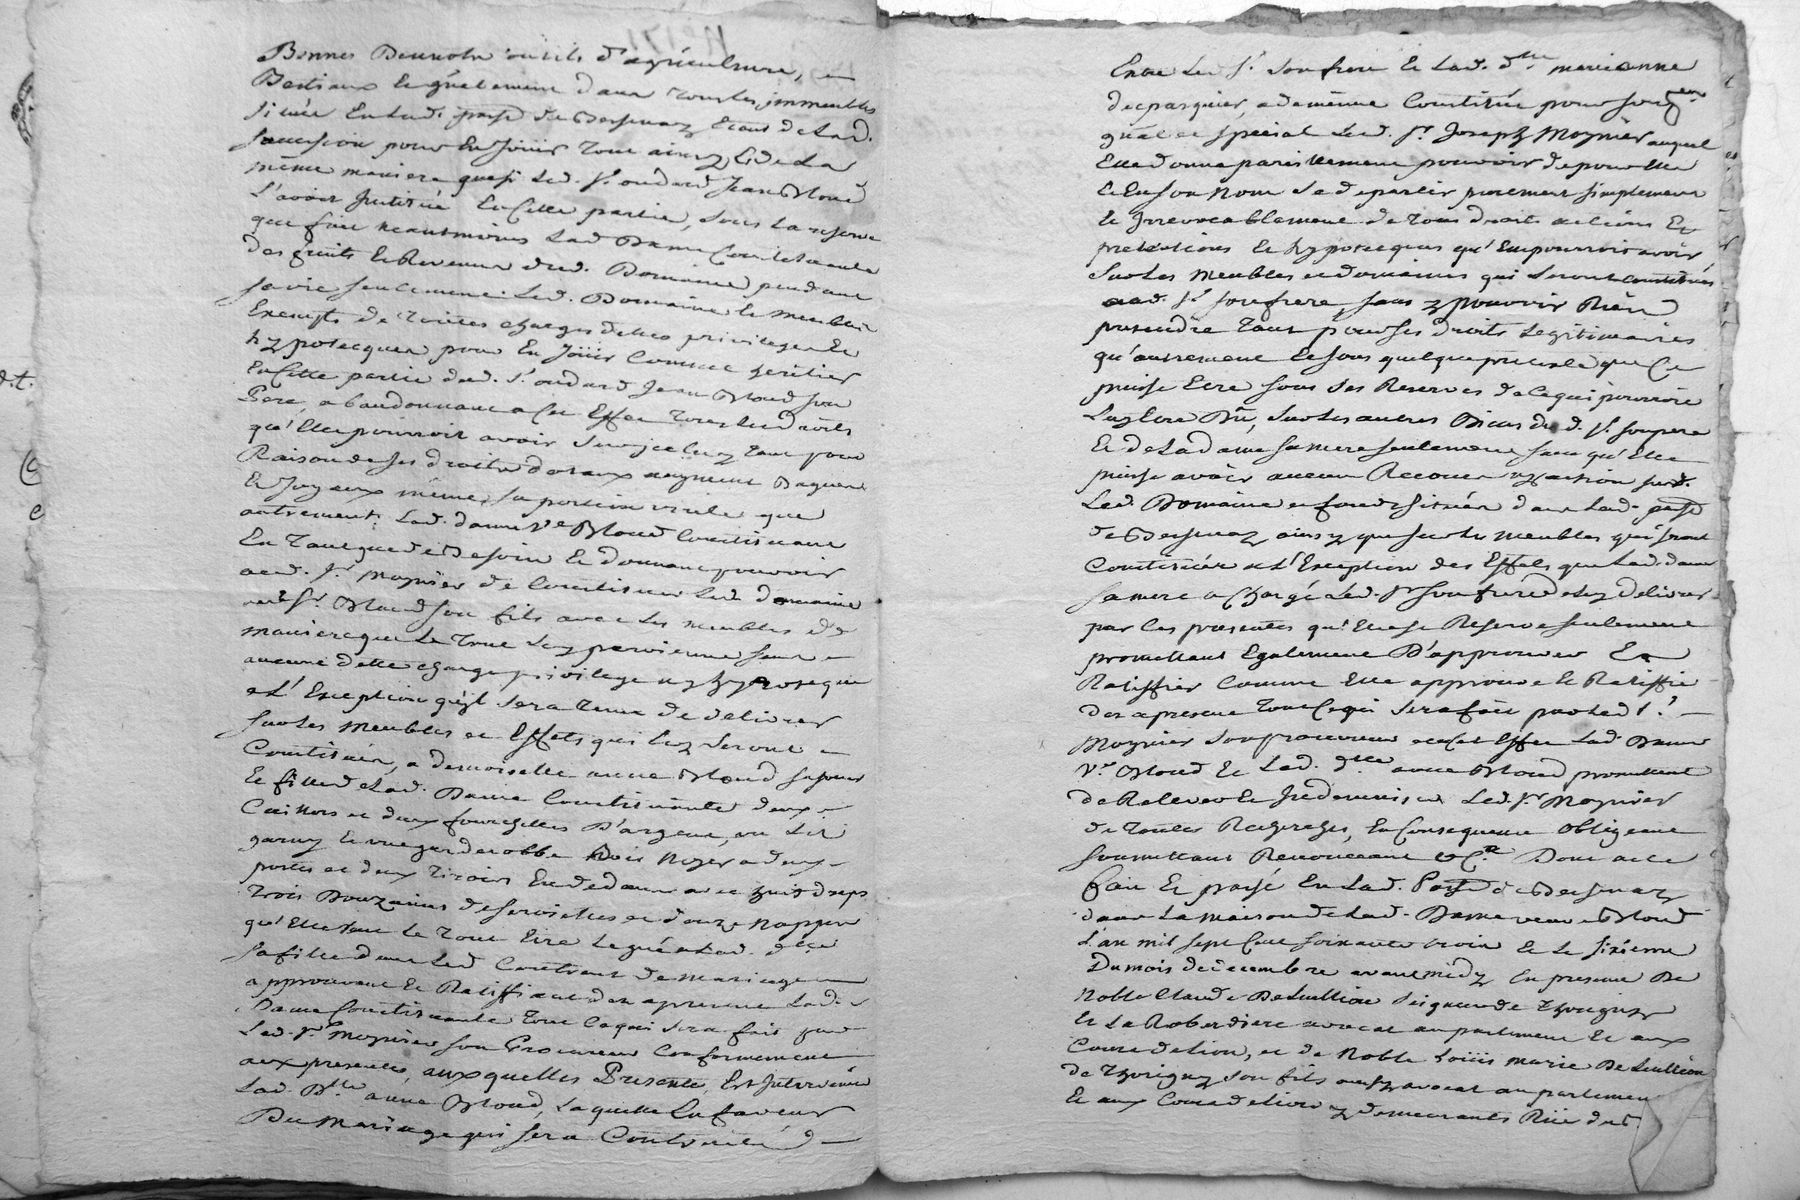 Bennes Bennots outils d'agriculture, et
Bestiaux Et gñalement dans tous les immeubles
situés En lad. parsse de Dessenaz Etant de lad.
succession pour En Joüir tout ainsy & de la
même maniere que si led. Sr. oudard Jean Bloud
L'avoit Institué En Cette partie, sous la reserve
que fait neantmoins lad. Dame Constituante
des fruits Et Revenus dud. Domaine pendant
sa vie seulement led. Domaine Et meubles
Exempts de toutes charges dettes privileges Et
hypotecques pour En Joüir Comme heritier
En Cette partie dud. Sr. oudard Jean Bloud son
Pere, abandonnant a Cet Effet tous les droits
qu'Elle pourroit avoir sur yceluy tant pour
Raison de ses droits dotaux augment Bagues
Et Joyaux même sa portion virile que
autrement; Lad. dame ve Bloud Constituant
En tant que de Besoin Et donnant pouvoir
aud. Sr. Moynier de Constituer led. domaine
aud. Sr. Bloud son fils avec les meubles de
maniere que le tout luy parvienne sans
aucune dette charge privilege ny hypoteque
a L'Exception qu'il sera tenu de delivrer
sur les meubles et Effets qui luy seront
Constitués, a demoiselle anne Bloud sa sœur
Et fille de lad. Dame Constituante deux
Cuilliers et deux fourchettes D'argent, un Lit
garny Et une garderobbe Bois Noyer a deux
portes et deux tiroirs En dedans avec huit draps
trois Douzaines de serviettes et douze Nappes
qu'Elle veut le tout Etre legué a Lad. dlle
sa fille dans led. Contrat de mariage
approuvant Et Ratiffiant des apresent Lad.
Dame Constituante tout Ce qui sera fait par
Led. Sr. Moynier son Procureur Conformement
aux presentes, auxquelles Presente, Est Intervenüe
Lad. Dlle. anne Bloud, laquelle En faveur
Du Mariage qui sera Contracté
Entre Led. Sr. son frere Et Lad. dlle marianne
decpasquier, a de même Constitué pour son Pr.
gñal et special Led. Sr. Joseph Moynier auquel
Elle donne pareillement pouvoir de pour Elle
Et En son Nom se departir purement simplement
Et Irrevocablement de tous droits actions Et
pretentions Et hypotecques qu'Elle pourroit avoir
sur les Meubles et domaines qui seront Constitués
aud. Sr. son frere, sans y pouvoir Rien
pretendre tant pour ses droits legitimaires
qu'autrement Et sous quelque pretexte que Ce
puisse Etre sous ses Reserves de Ce qui pourroit
luy Etre Dû, sur les autres Biens dud. Sr. son pere
Et de la dame sa mere seulement sans qu'Elle
puisse avoir aucun Recours ny action sur
Led. Domaine et fonds situés dans lad. parsse
de Dessenaz ainsy que sur les meubles qui seront
Constitués a l'Exception des Effets que Lad. dame
sa mere a Chargé Led. Sr son frere de luy delivrer
par les presentes qu'Elle se Reserve seulement
promettant Egalement D'approuver Et
Ratiffier Comme Elle approuve Et Ratiffie
des apresent tout Ce qui sera fait par led. Sr.
Moynier son procureur a Cet Effet Lad. Dame
Ve. Bloud Et Lad. dlle anne Bloud promettent
de Relever Et Indemniser Led. Sr Moynier
de toutes Recherches, En Consequence obligeant
soumettant Renonceant &Ca. Dont acte
fait Et passé En Lad. Parsse de Dessenaz
dans La maison de Lad. Dame veuve Bloud
L'an mil sept Cent soixante trois Et Le sixieme
Du mois de decembre avant midy En presence De
Noble Claude Deleullion seigneur de Thorigny
Et La Roberdiere avocat au parlement Et aux
Cours de Lion, et de Noble Loüis marie Deleullion
de Thorigny son fils aussy avocat au parlement
Et aux Cours de Lion y demeurants Rüe du